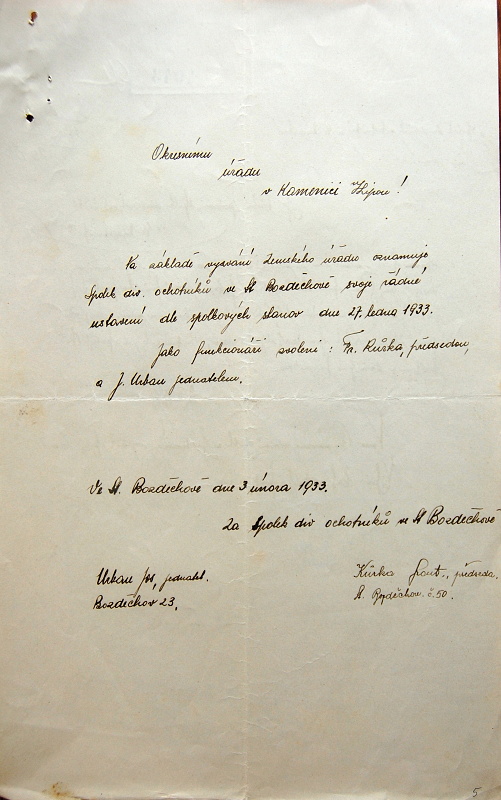 Okresnímu
úřadu
v Kamenici n/Lipou!
Na základě vyzvání zemského úřadu oznamuje
Spolek div. ochotníků ve St Bozděchově svoje řádné
ustavení dle spolkových stanov dne 27. ledna 1933.
Jako funkcionáři zvoleni: Fr. Kůrka, předsedou,
a J. Urban jednatelem.
Ve St. Bozděchově dne 3 února 1933.
Za Spolek div ochotníků ve St Bozděchově
Urban Jos, jednatel.
Bozděchov 23,
Kůrka Frant., předseda.
St. Bozděchov. č. 50.
5